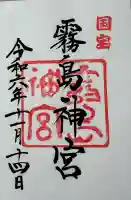 国宝
霧島神宮
令和六年十一月十四日